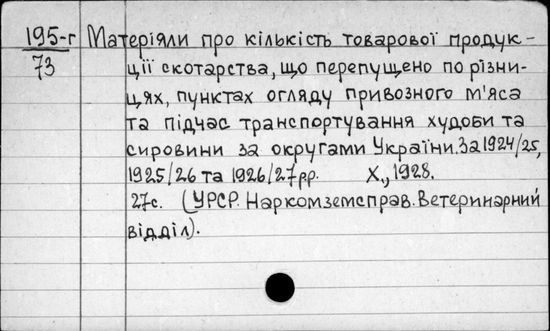 195-г Матеріяли про кількість товарової продук-
73 ції скотарства, що перепущено по різни-
цях, пунктах огляду привозного м'яса
та підчас транспортування худоби та
сировини за округами України. За 1924/25,
1925/26 та 1926/27рр. Х., 1928.
27с. (УРСР. Наркомземсправ. Ветеринарний
відділ).